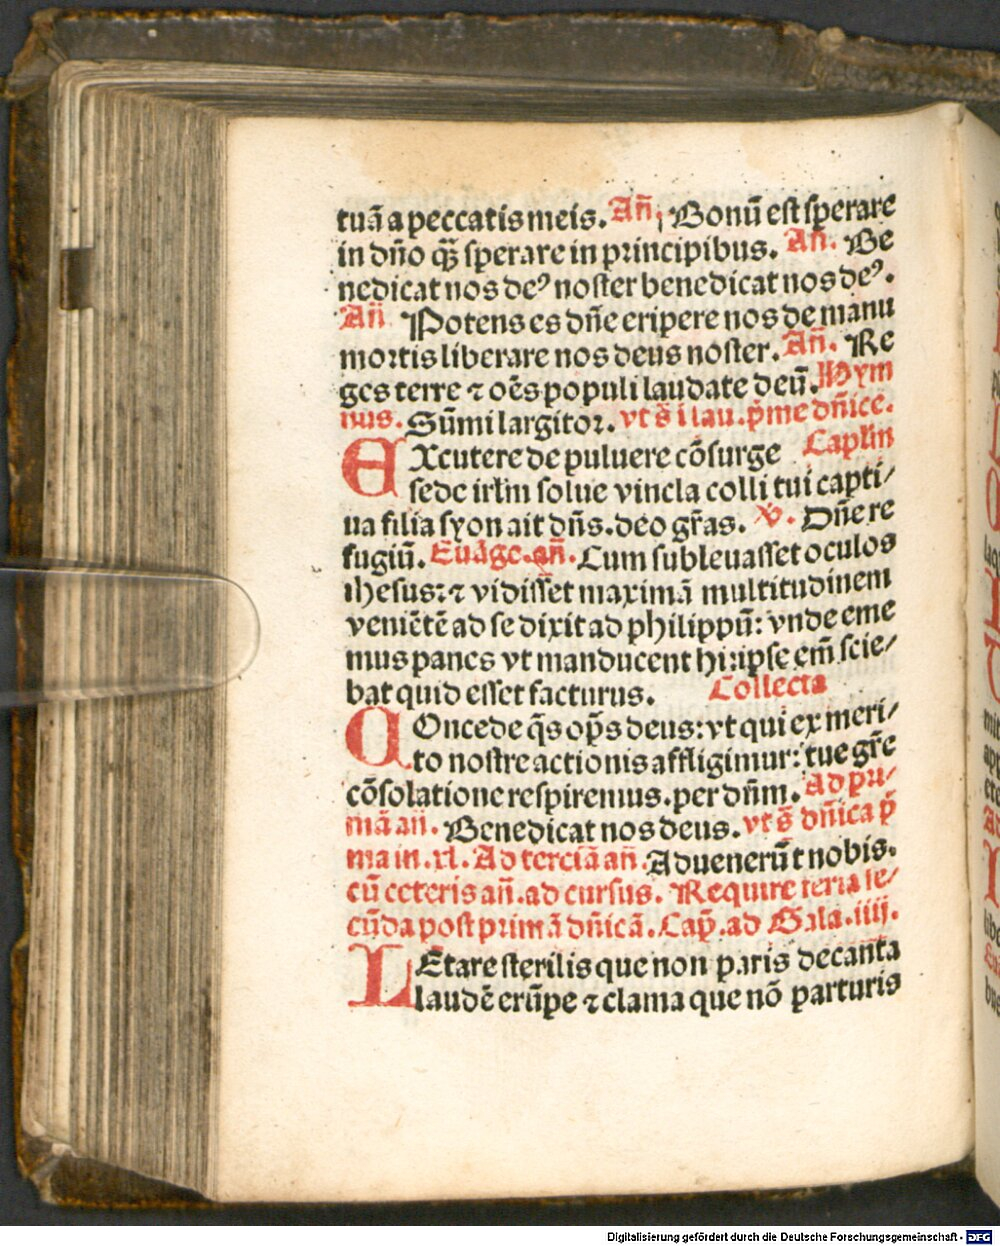 tuā a peccatis meis. Añ. Bonū est sperare
in dño qꝫ̄ sperare in principibus. Añ. Be
nedicat nos deꝰ noster benedicat nos deꝰ.
Añ Potens es dñe eripere nos de manu
mortis liberare nos deus noster. Añ. Re
ges terre ⁊ oēs populi laudate deū. Hym
nus. Sūmi largitor. vt s̄ i lau. p̄me dñice.
EXcutere de puluere cōsurge Caplm̄
sede irlm̄ solue vincla colli tui capti/
ua filia syon ait dñs. deo gr̄as. ℣. Dñe re
fugiū. Euāge. añ. Cum subleuasset oculos
ihesus: ⁊ vidisset maximā multitudinem
veniētē ad se dixit ad philippū: vnde eme
mus panes vt manducent hi: ipse em̄ scie/
bat quid esset facturus. Collecta
COncede q̄s op̄s deus: vt qui ex meri/
to nostre actionis affligimur: tue gr̄e
cōsolatione respiremus. per dñm. Ad pri/
mā añ. Benedicat nos deus. vt s̄ dñica p̄
ma in .xl. Ad terciā añ. Aduenerūt nobis.
cū ceteris añ. ad cursus. Require feria se/
cūda post primā dñicā. Cap̄. ad Gala. iiij.
LEtare sterilis que non paris decanta
laudē erūpe ⁊ clama que nō parturis
Digitalisierung gefördert durch die Deutsche Forschungsgemeinschaft - DFG